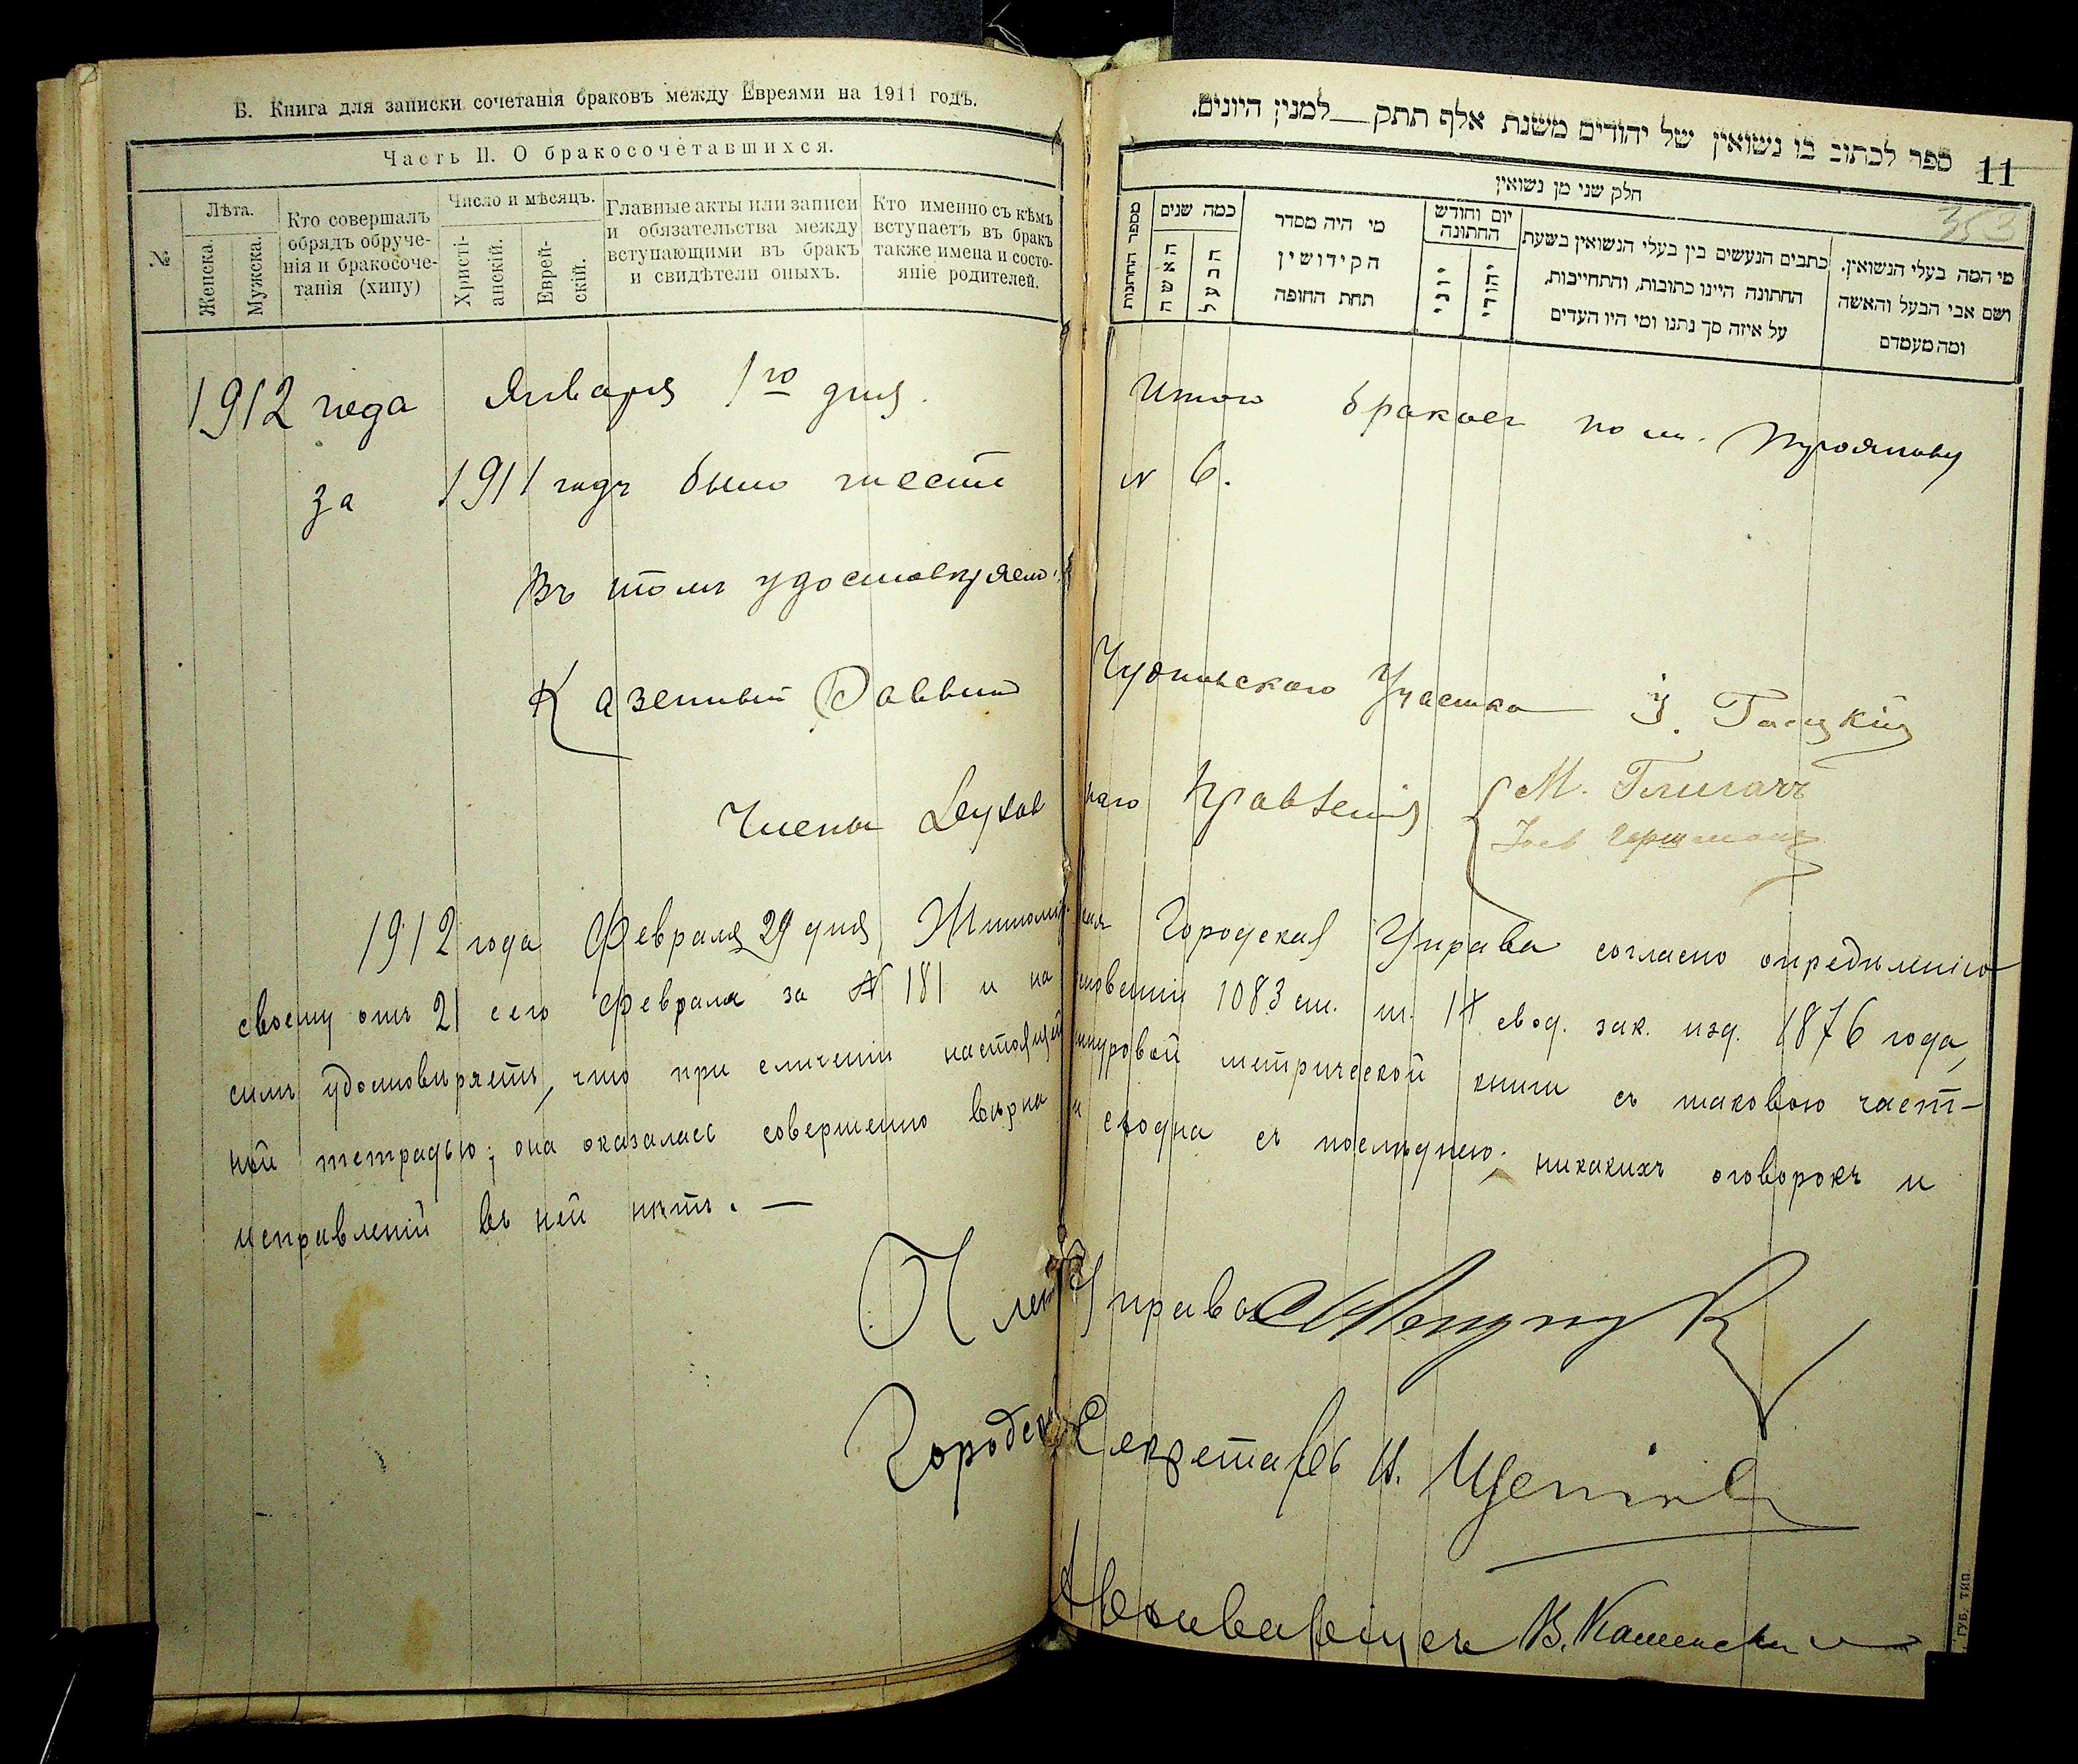 Б. Книга для записки сочетанія браковъ между Евреями на 1911 годъ.
Часть II. О бракосочетавшихся.
№
Лѣта.
Женска.
Мужска.
Кто совершалъ
обрядъ обруче-
нія и бракосоче-
танія (хипу)
Число и мѣсяцъ.
Христі-
анскій.
Еврей-
скій.
Главные акты или записи
и обязательства между
вступающими въ бракъ
и свидѣтели оныхъ.
Кто именно съ кѣмъ
вступаетъ въ бракъ
также имена и состо-
яніе родителей.
ספר לכתוב בו נשואין של יהודים משנת אלף תתק__למנין היונים.
11
353
חלק שני מן נשואין
מספר החתנות
כמה שנים
האשה
הבעל
מי היה מסדר
הקידושין
תחת החופה
יום וחודש
החתונה
יוני
יהודי
כתבים הנעשים בין בעלי הנשואין בשעת
החתונה היינו כתובות, והתחייבות,
על איזה סך נתנו ומי היו העדים
מי המה בעלי הנשואין.
ושם אבי הבעל והאשה
ומה מעמדם
1912 года Января 1го дня. Итого браковъ по м.
за 1911 годъ было шесть № 6.
Въ томъ удостовѣряемъ:
Казенный Раввинъ Чудновскаго Участка
Члены Духовнаго Правленія М.
1912 года Февраля 29 дня, Житомирская Городская Управа согласно опредѣленію
своему отъ 21 сего февраля за № 181 и на основаніи 1083 ст. т. IX свод. зак. изд. 1876 года,
симъ удостовѣряетъ, что при сличеніи настоящей шнуровой метрической книги съ таковою част-
ной тетрадью; она оказалась совершенно вѣрна и сходна съ послѣднею; никакихъ оговорокъ и
исправленій въ ней нѣтъ. —
Членъ Управы
Городской Секретарь
Архиваріусъ В.
ГУБ. ТИП.